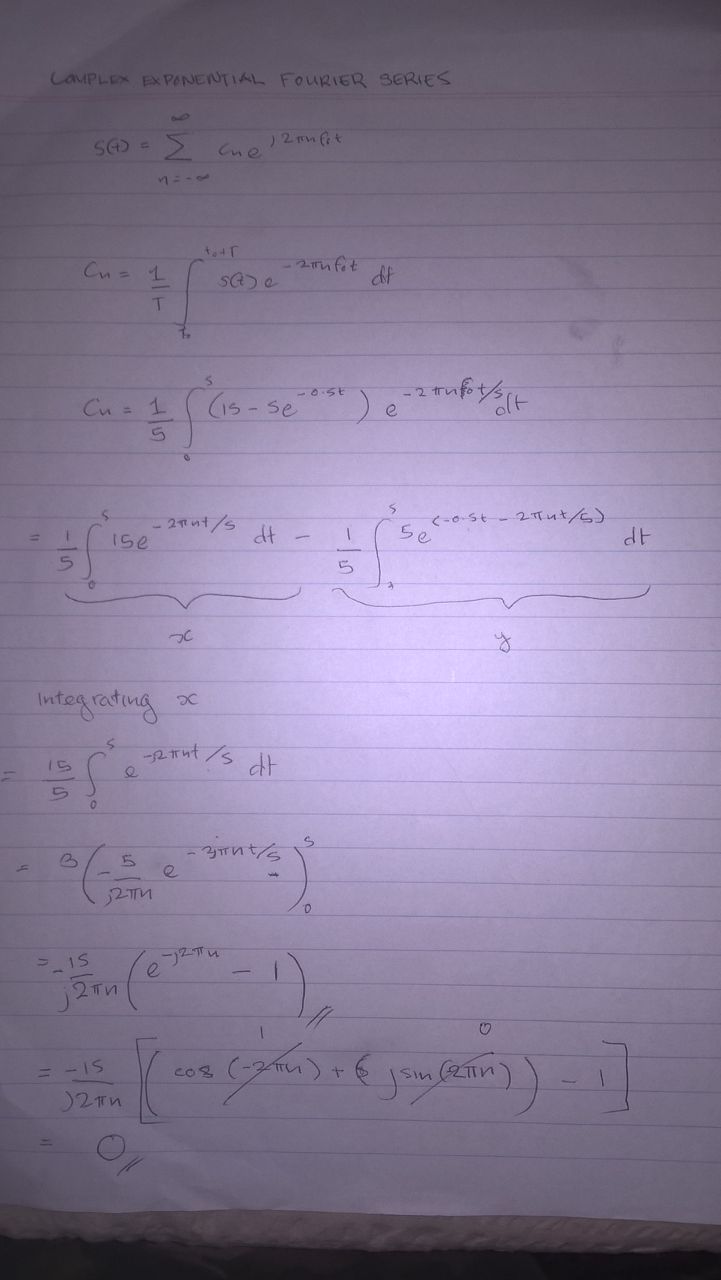 COMPLEX EXPONENTIAL FOURIER SERIES
s(t) = ∑_{n=-∞}^{∞} Cn e^{j2πnf₀t}
Cn = 1/T ∫_{t₀}^{t₀+T} s(t) e^{-2πnf₀t} dt
Cn = 1/5 ∫_0^5 (15 - 5e^{-0.5t}) e^{-2πnf₀t/5} dt
= 1/5 ∫_0^5 15e^{-2πnt/5} dt - 1/5 ∫^5 5e^{(-0.5t - 2πnt/5)} dt
x y
Integrating x
= 15/5 ∫_0^5 e^{-j2πnt/5} dt
= 3 (-5/j2πn e^{-j2πnt/5})_0^5
= -15/j2πn (e^{-j2πn} - 1)
1 0
= -15/j2πn [(cos(-2πn) + j sin(-2πn)) - 1]
= 0